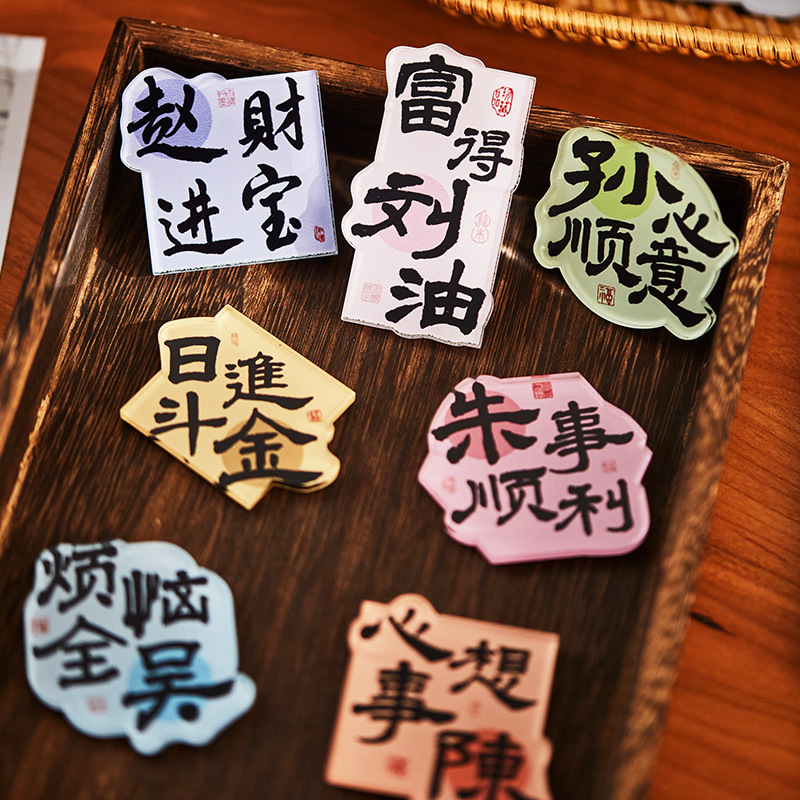 赵財
进宝
富得
刘油
孙心
顺意
日進
斗金
朱事
顺利
烦恼
全吴
心想
事陳